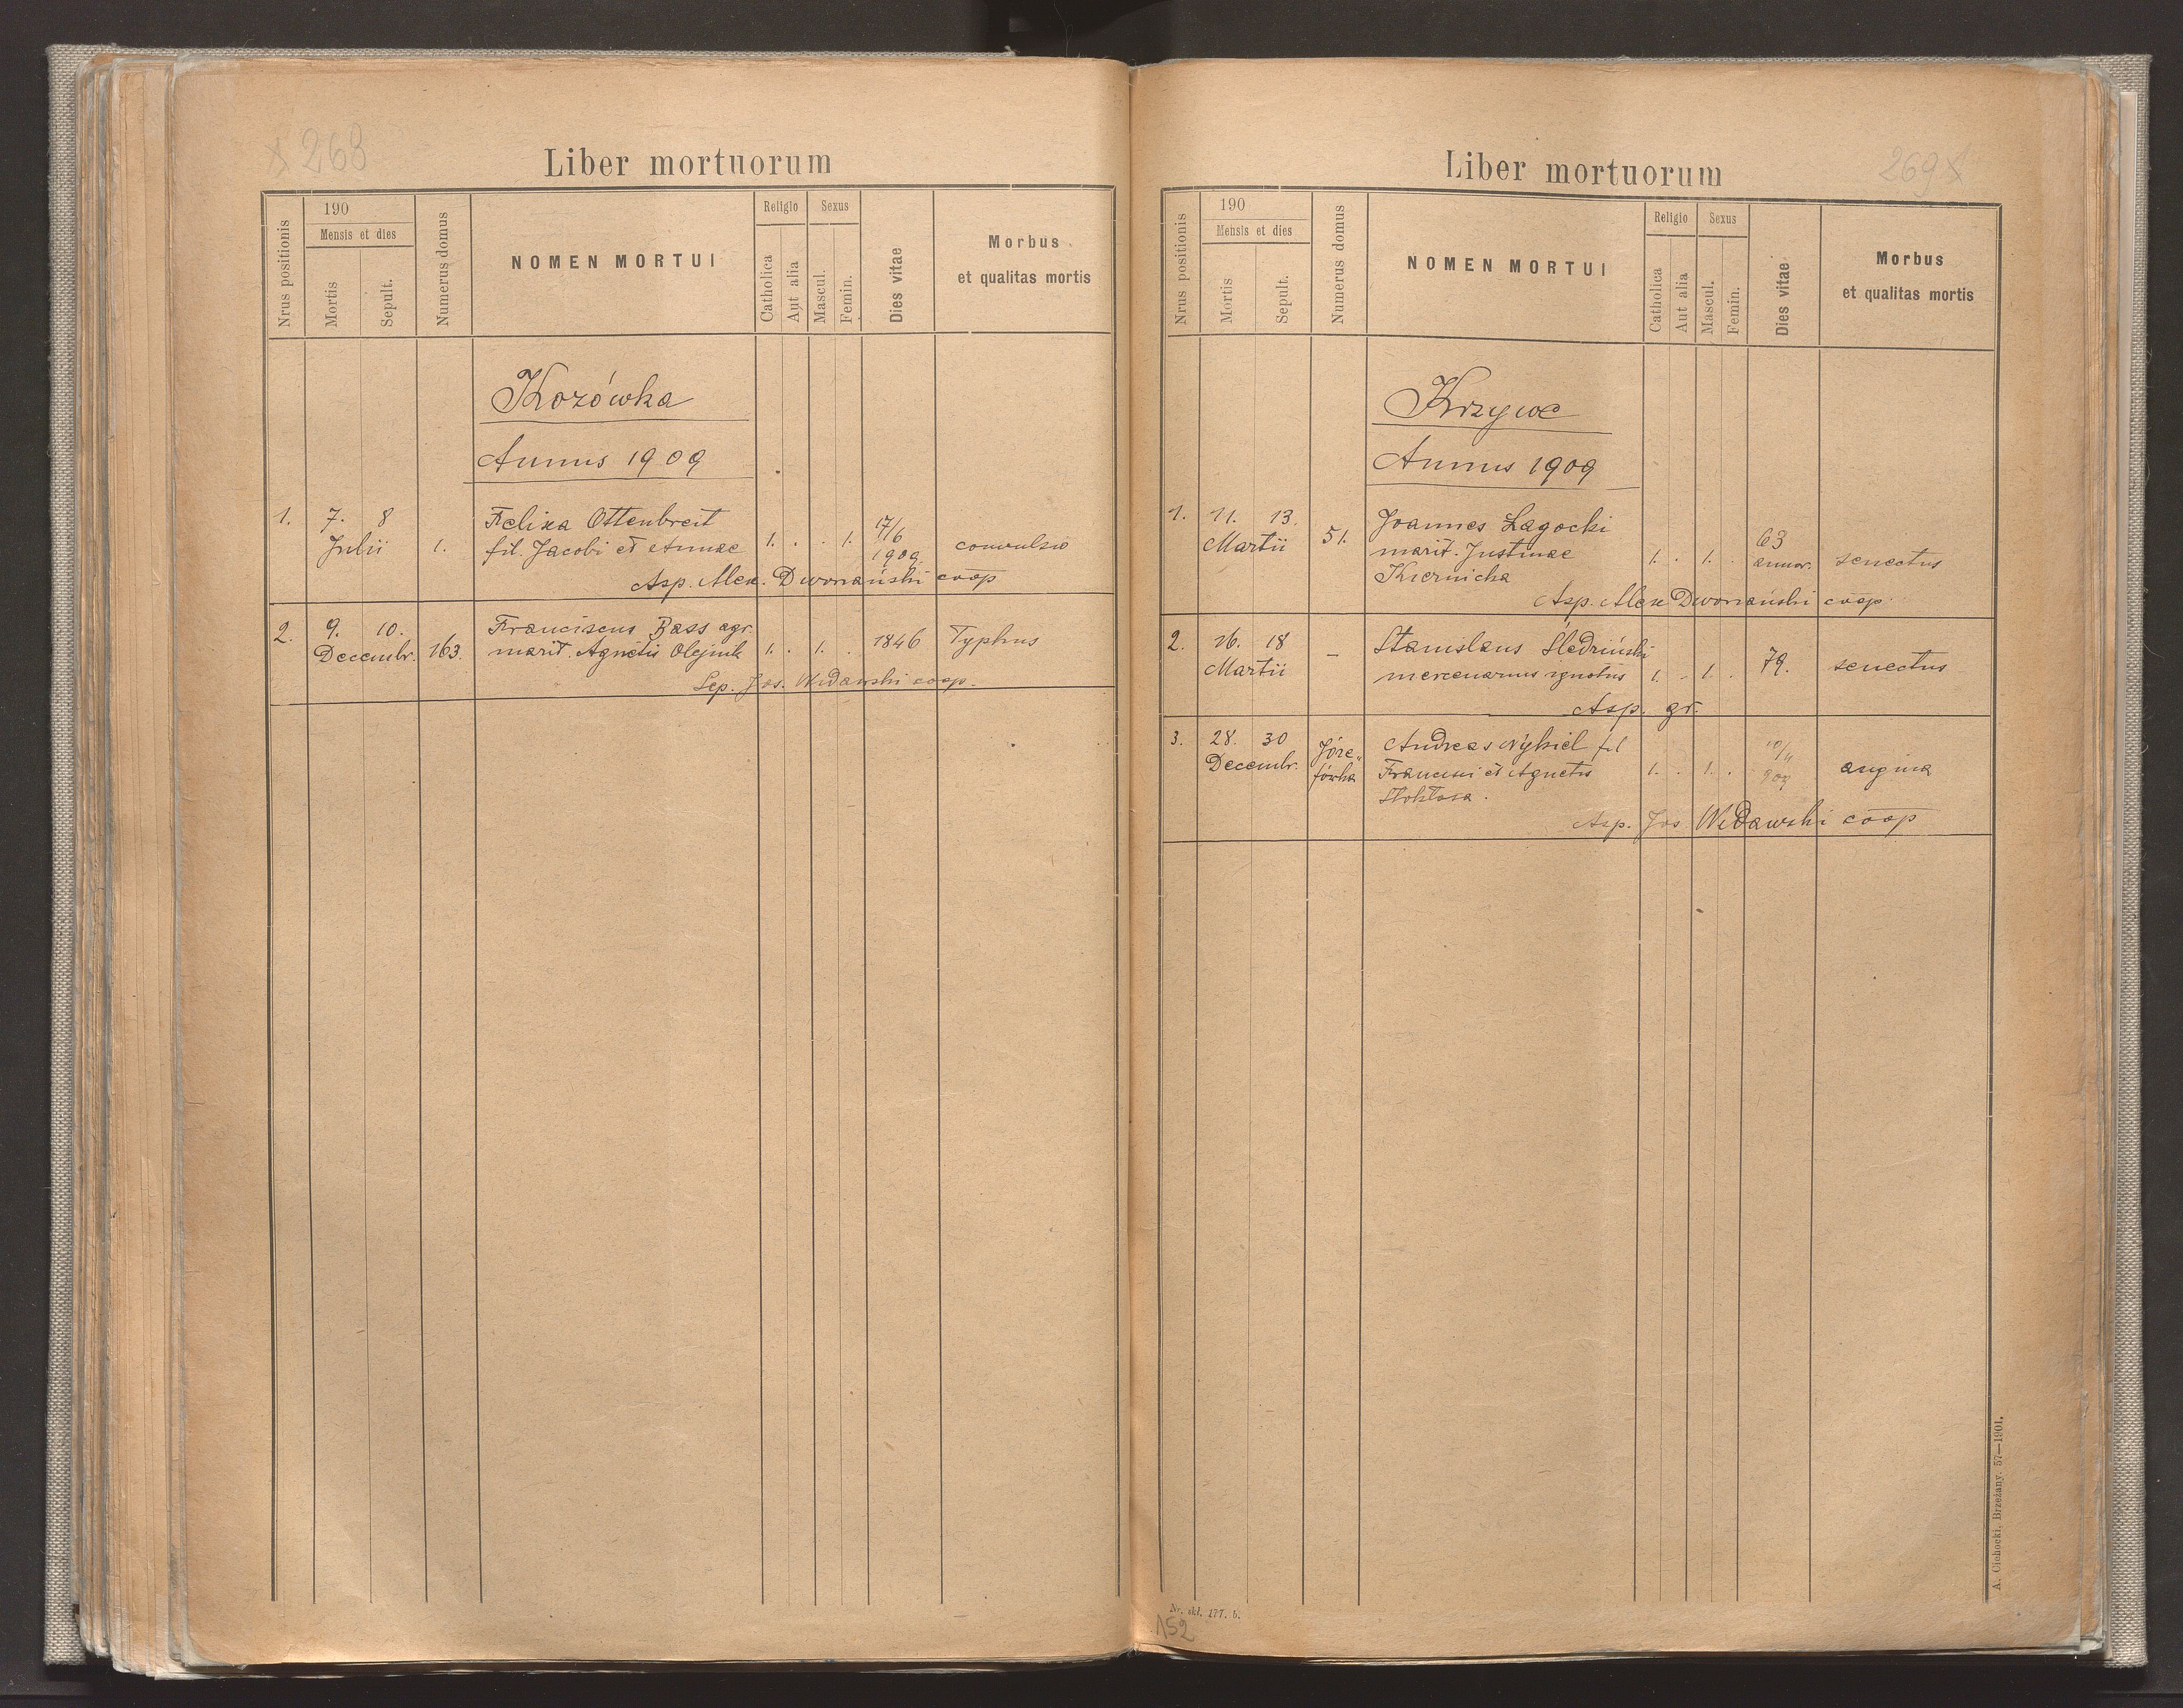 268
Liber mortuorum
Nrus positionis
190
Mensis et dies
Mortis
Sepult.
Numerus domus
NOMEN MORTUI
Religio
Catholica
Aut alia
Sexus
Mascul.
Femin.
Dies vitae
Morbus
et qualitas mortis
Kozówka
Annus 1909
1. 7. 8 Felixa Ottenbreit 17/6
Julii 1. fil. Jacobi et Annae 1. . . 1. 1909 convulsio
Asp. Alex. Dworzański coop
2. 9. 10. Franciscus Bass agr.
Decembr. 163. marit. Agnetis Olejnik 1. . 1. . 1846 Typhus
Sep. Jos. Widawski coop.
269
Liber mortuorum
Nrus positionis
190
Mensis et dies
Mortis
Sepult.
Numerus domus
NOMEN MORTUI
Religio
Catholica
Aut alia
Sexus
Mascul.
Femin.
Dies vitae
Morbus
et qualitas mortis
Krzywe
Annus 1909
1. 11. 13. Joannes Łagocki 63
Martii 51. marit. Justinae 1. . 1. . annor. senectus
Kiernicka
Asp. Alex Dworzański coop
2. 16. 18 Stanislaus Śledziński
Martii – mercenarius ignotus 1. - 1. . 79. senectus
Asp. gr.
3. 28. 30 Józe„ Andreas Nykiel fil 10/11
Decembr. fówka Francisci et Agnetis 1. . 1. . 909 angina
Stokłosa.
Asp. Jos Widawski coop
A. Cichocki, Brzeżany. 57—1901.
Nr. skł. 177. b.
152